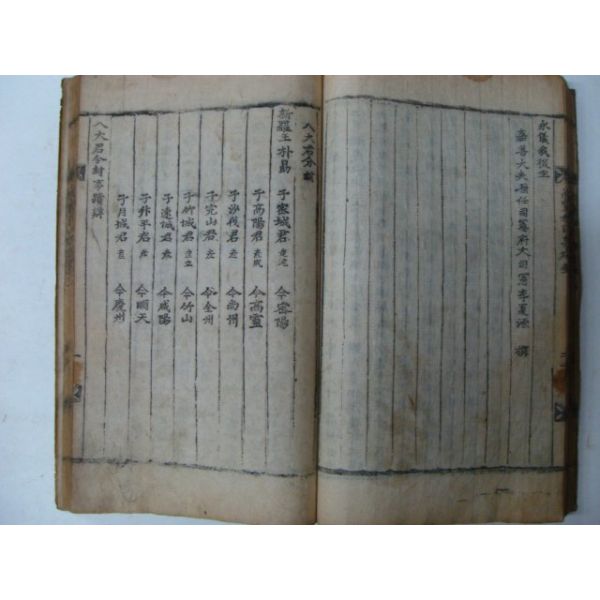 永儀我後生
嘉善大夫原任司憲府大司憲李夏源 撰
八大君分封
新羅王朴昜
子密城君 今密陽
子高陽君 今高靈
子沙伐君 今尚州
子完山君 今全州
子竹城君 今竹山
子速咸君 今咸陽
子昇平君 今順天
子月城君 今慶州
八大君分封事蹟辨